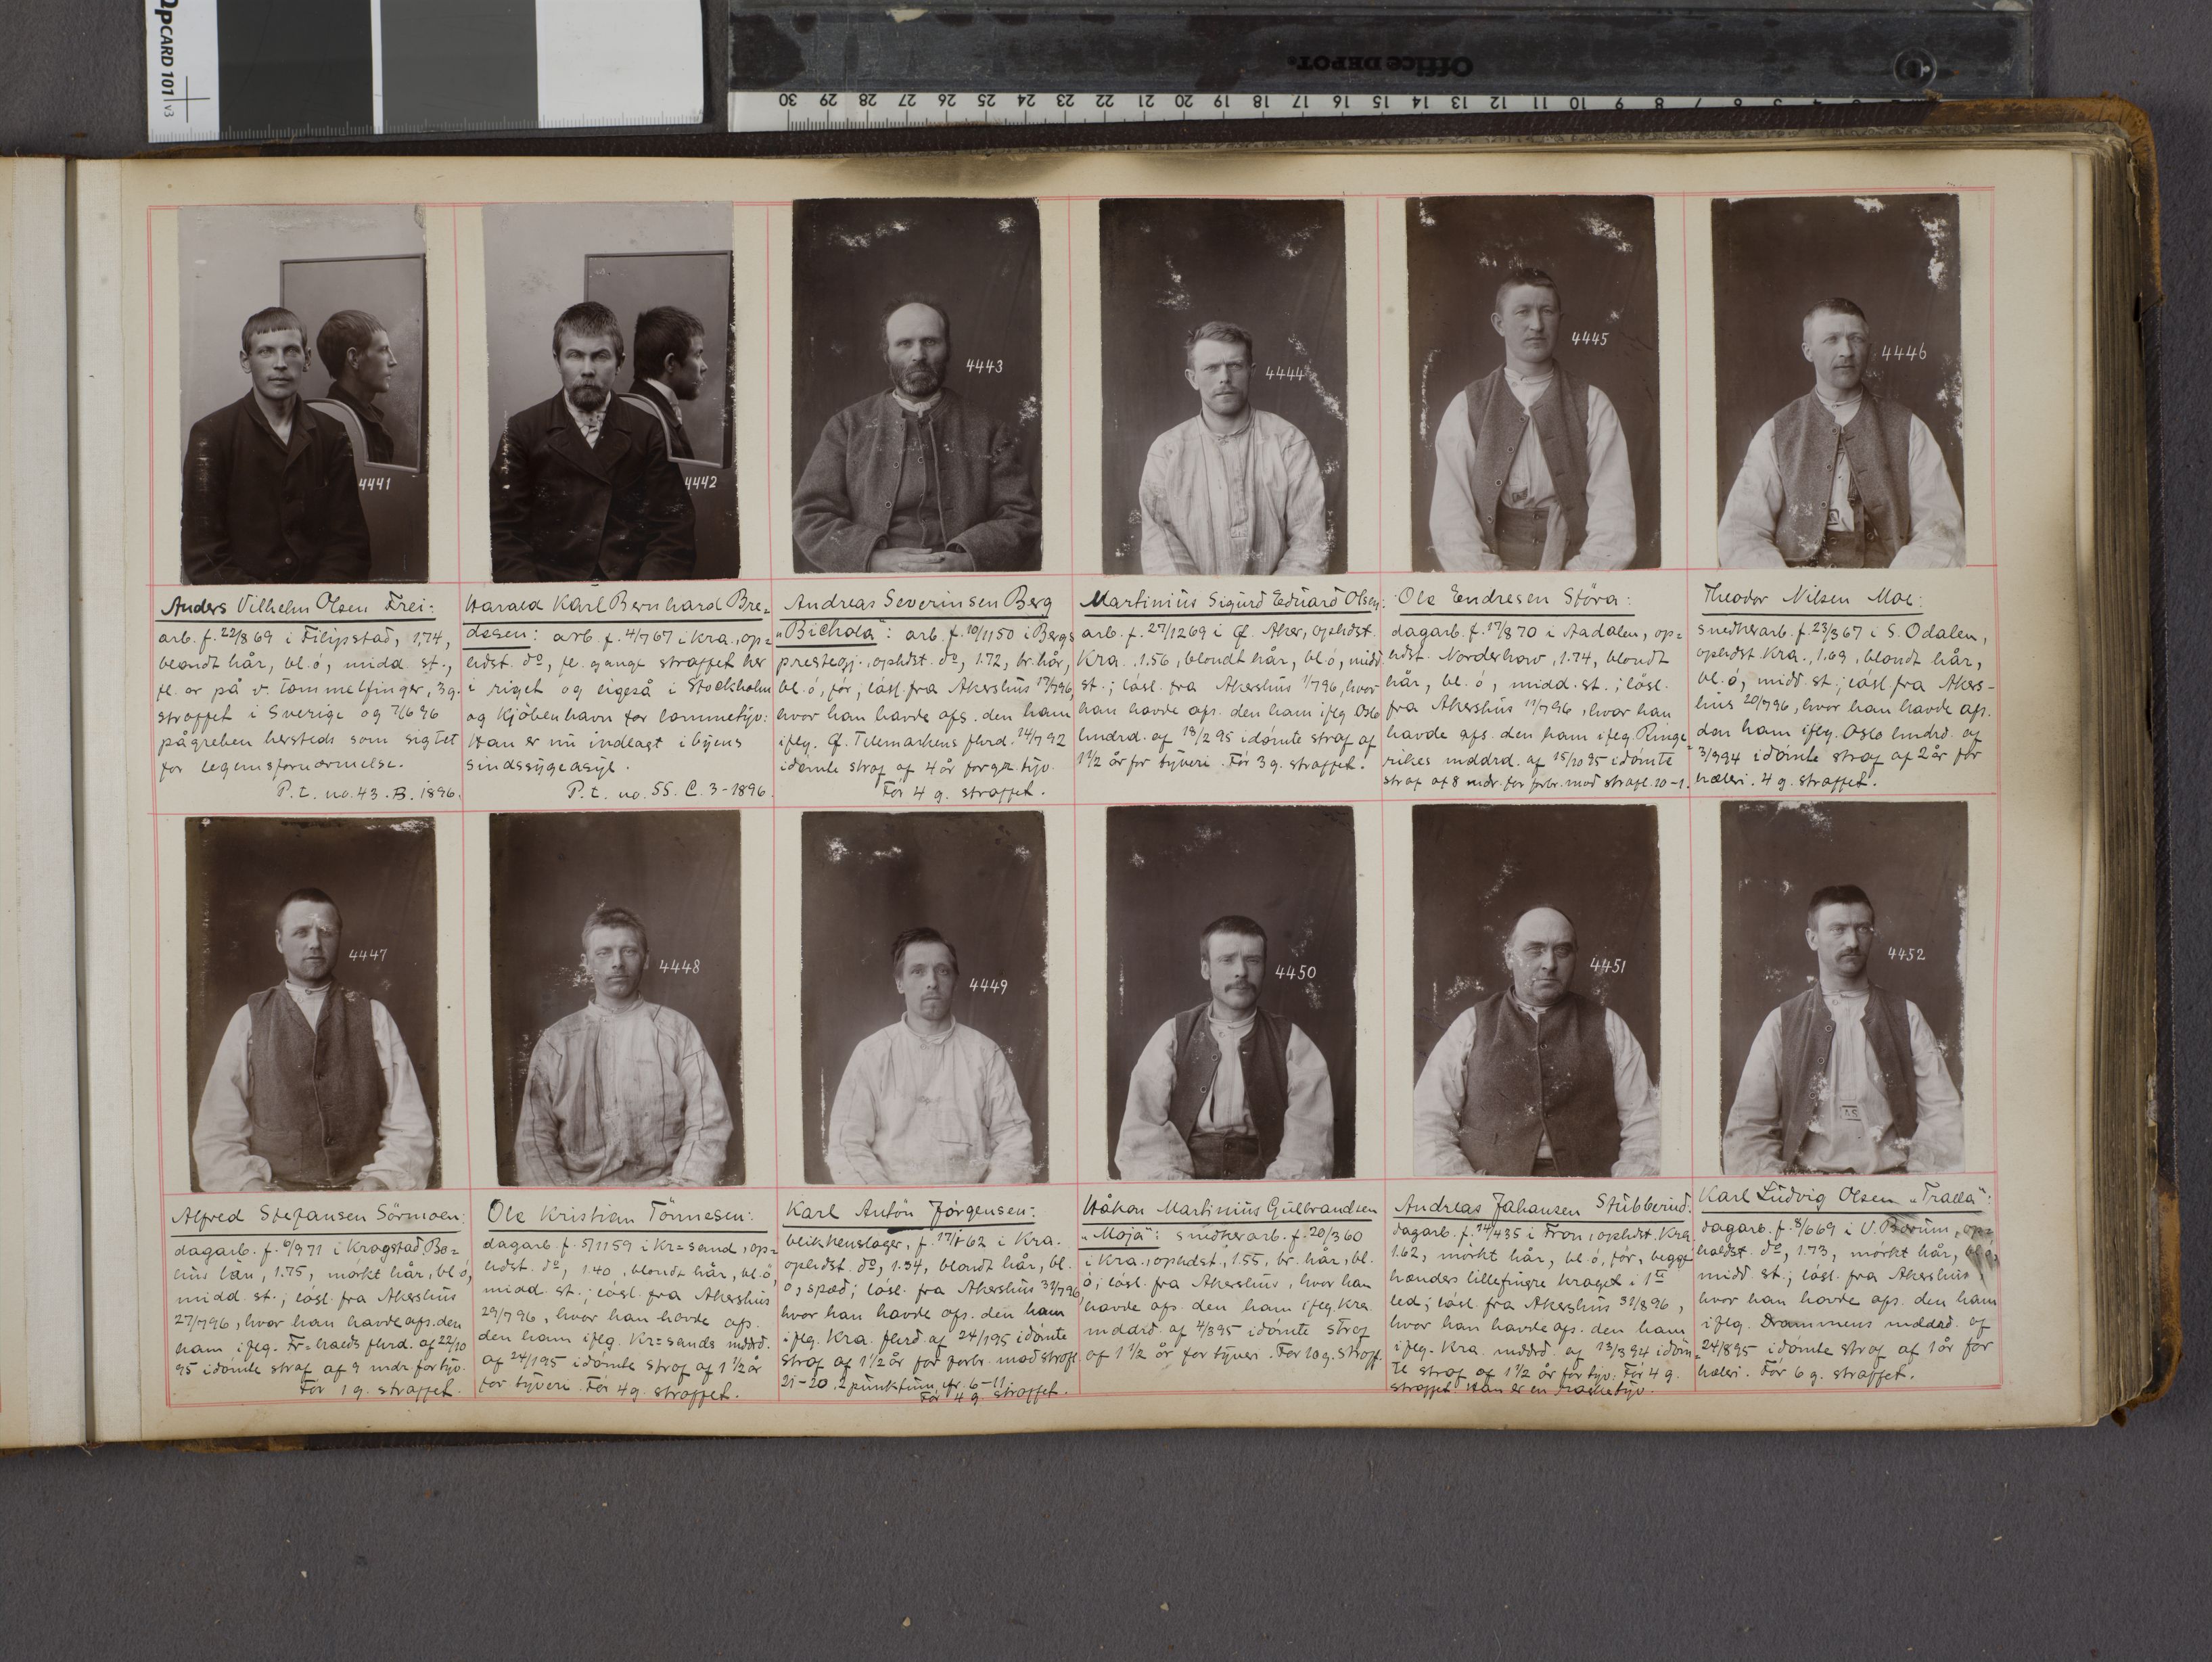 OpCARD 101 v3
Office DEPOT.
30 29 28 27 26 25 24 23 22 21 20 19 18 17 16 15 14 13 12 11 10 9 8 7 6 5 4 3
4441
4442
4443
4444
4445
4446
Anders Vilhelm Olsen Frei:
arb. f. 22/8 69 i Filipstad, 1,74,
blondt hår, bl. ö, midd. st.,
fl. ar på v. tommelfinger, 3 g.
straffet i Sverige og 7/6 96
pågreben hersteds som sigtet
for legemsfornærmelse.
P.t. no. 43. B. 1896.
Harald Karl Bernhard Bre=
desen: arb. f. 4/7 67 i Kra., op=
hdst. do, fl. gange straffet her
i riget og ligeså i Stockholm
og Kjöbenhavn for lommetyv:
Han er nu indlagt i byens
sindssygeasyl.
P.t. no. 55. C. 3-1896.
Andreas Severinsen Berg
"Bichola": arb. f. 10/11 50 i Bergs
prestegj., ophdst. do, 1.72, br. hår,
bl. ö, för; lösl. fra Akershus 17/7 96,
hvor han havde afs. den ham
iflg. Ö. Telemarkens flrd. 14/7 92
idömte straf af 4 år for gr. tyv.
För 4 g. straffet.
Martinius Sigurd Eduard Olsen:
arb. f. 27/12 69 i Ö. Aker, ophdst.
Kra., 1.56, blondt hår, bl. ö, midd.
st.; lösl. fra Akershus 1/7 96, hvor
han havde afs. den ham iflg. Oslo
mdrd. af 18/2 95 idömte straf af
1 1/2 år for tyveri. För 3 g. straffet.
Ole Endresen Störa:
dagarb. f. 17/8 70 i Aadalen, op=
hdst. Norderhov, 1.74, blondt
hår, bl. ö, midd. st.; lösl.
fra Akershus 11/7 96, hvor han
havde afs. den ham iflg. Ringe=
rikes mddrd. af 15/10 95 idömte
straf af 8 mdr. for forbr. mod strafl. 20-1.
Theodor Nilsen Moe:
snedkerarb. f. 23/3 67 i S. Odalen,
ophdst. Kra., 1,69, blondt hår,
bl. ö, midd. st.; lösl. fra Akers-
hus 20/7 96, hvor han havde afs.
den ham iflg. Oslo mdrd. af
3/9 94 idömte straf af 2 år for
hæleri. 4 g. straffet.
4447
4448
4449
4450
4451
4452
Alfred Stefansen Sörmoen:
dagarb. f. 6/9 71 i Kragstad Bo=
hus län, 1.75, mörkt hår, bl. ö,
midd. st.; lösl. fra Akershus
27/7 96, hvor han havde afs. den
ham iflg. Fr=halds flrd. af 22/10
95 idömte straf af 9 mdr. for tyv.
För 1 g. straffet.
Ole Kristian Tönnesen:
dagarb. f. 5/11 59 i Kr=sand, op=
hdst. do, 1.40, blondt hår, bl. ö,
midd. st.; lösl. fra Akershus
29/7 96, hvor han havde afs.
den ham iflg. Kr=sands mddrd.
af 24/1 95 idömte straf af 1 1/2 år
for tyveri. För 4 g. straffet.
Karl Anton Jörgensen:
blikkenslager, f. 17/1 62 i Kra.
ophdst. do, 1.54, blondt hår, bl.
ö, spæd; lösl. fra Akershus 31/7 96,
hvor han havde afs. den ham
iflg. Kra. flrd. af 24/1 95 idömte
straf af 1 1/2 år for forbr. mod strafl.
21-20. 2 punktum, jfr. 6-11.
För 4 g. straffet.
Håkon Martinius Gulbrandsen
"Moja": snedkerarb. f. 20/3 60
i Kra., ophdst., 1.55, br. hår, bl.
ö; lösl. fra Akershus, hvor han
havde afs. den ham iflg. Kra.
mddrd. af 4/3 95 idömte straf
af 1 1/2 år for tyveri. För 10 g. straff.
Andreas Johansen Stubberud:
dagarb. f. 14/4 35 i Fron, ophdst. Kra.
1.62, mörkt hår, bl. ö, för, begge
hænders lillefingre kroget i 1ste
led; lösl. fra Akershus 31/8 96,
hvor han havde afs. den ham
iflg. Kra. mddrd. af 13/3 94 idöm=
te straf af 1 1/2 år for tyv. För 4 g.
straffet. Han er en frakketyv.
Karl Ludvig Olsen "Tralla":
dagarb. f. 8/6 69 i V. Bærum, op=
holdst. do, 1.73, mörkt hår,
midd. st.; lösl. fra Akershus,
hvor han havde afs. den ham
iflg. Drammens mddrd. af
24/8 95 idömte straf af 1 år for
hæleri. För 6 g. straffet.